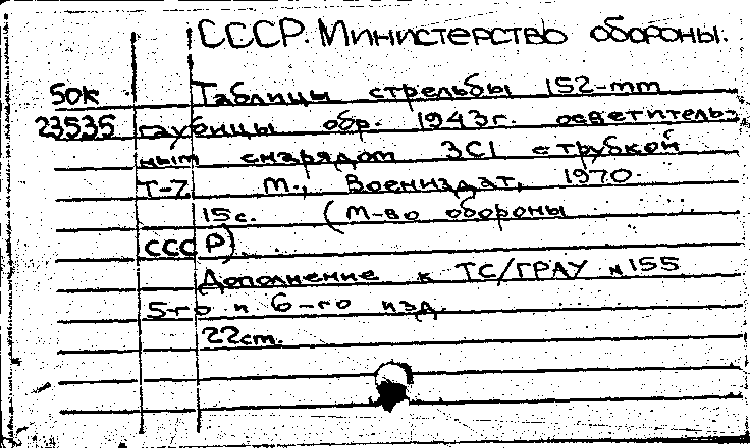 СССР. Министерство обороны.
50к Таблицы стрельбы 152-mm
23535 гаубицы обр. 1943г. осветитель-
ным снарядом 3С1 с трубкой
Т-7. М., Воениздат, 1970.
15с. (М-во обороны
СССР).
Дополнение к ТС/ГРАУ №155
5-го и 6-го изд.
22см.